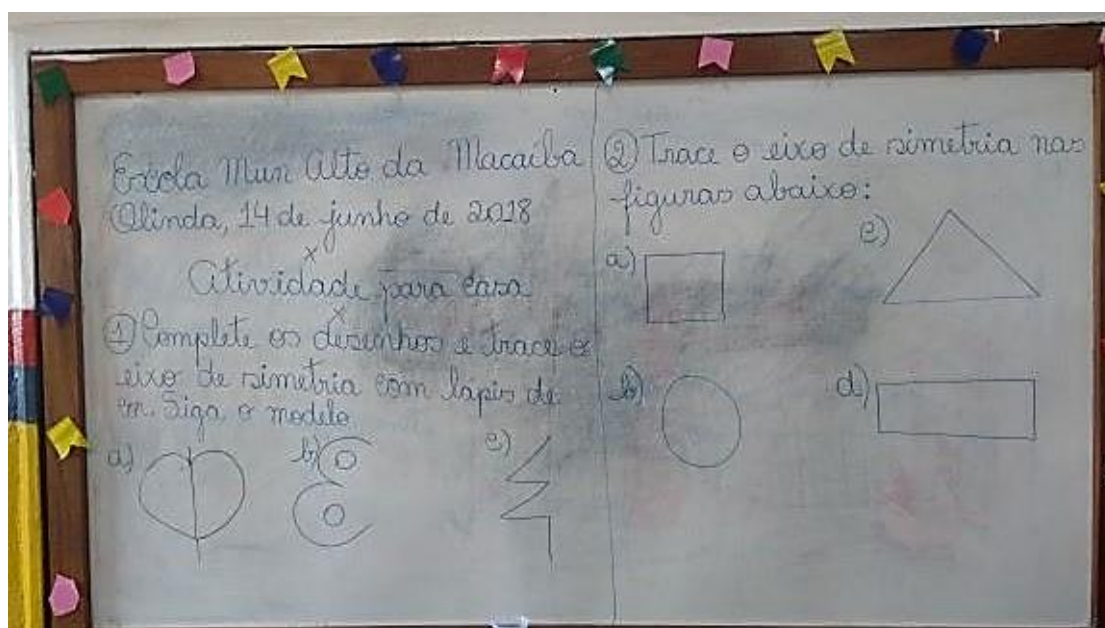 Escola Mun Alto da Macaíba
Olinda, 14 de junho de 2018
x
Atividade para casa
x
① Complete os desenhos e trace o
eixo de simetria com lápis de
cor. Siga o modelo.
a) b) c)
② Trace o eixo de simetria nas
figuras abaixo:
a) c)
b) d)